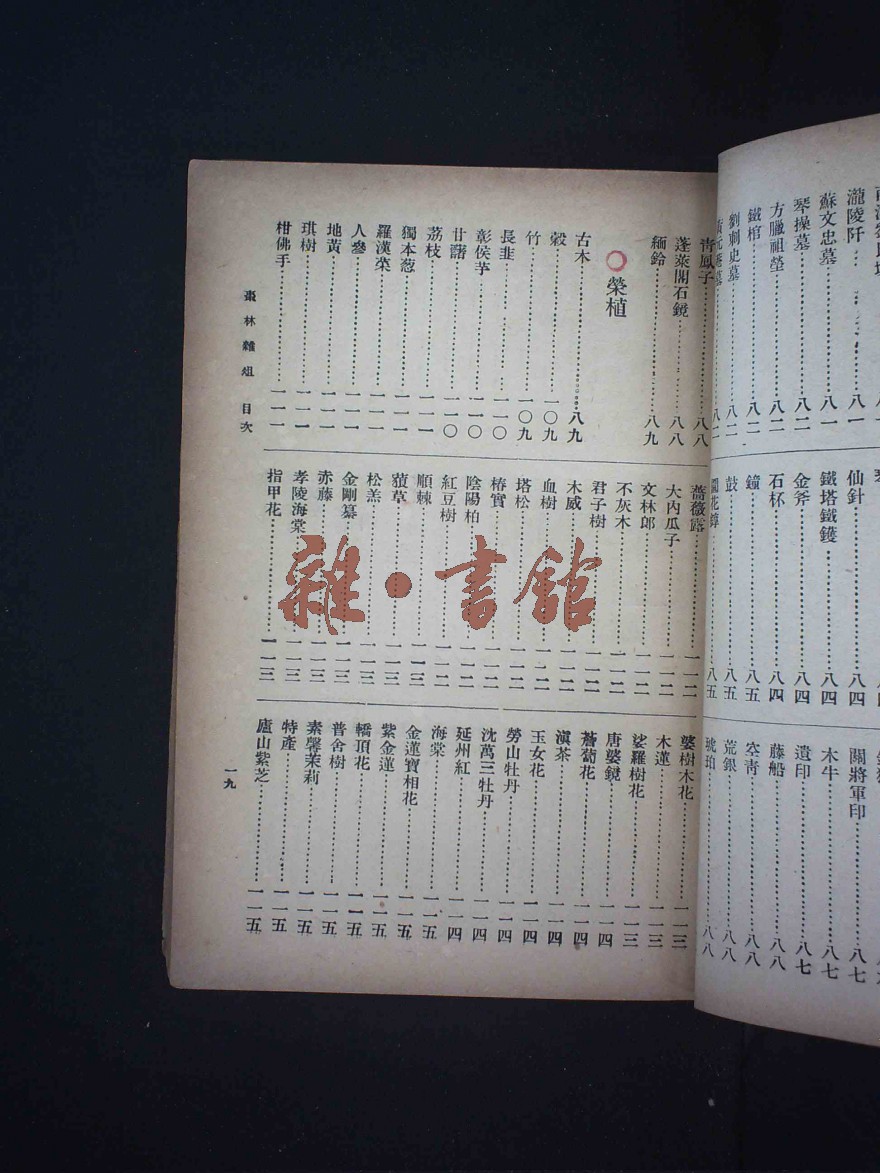 瀧陵阡……八一
蘇文忠墓……八一
琴操墓……八二
方臘祖塋……八二
鐵棺……八二
劉剌史墓……八二
仙針……八四
鐵塔鐵鑊……八四
金斧……八四
石杯……八四
鐘……八五
鼓……八五
關將軍印……八七
木牛……八七
遺印……八七
藤船……八八
空青……八八
荒銀……八八
琥珀……八八
青鳳子……八八
蓬萊閣石鏡……八八
緬鈴……八九
榮植
古木……八九
穀……一〇九
竹……一〇九
長韭……一一〇
彰侯芋……一一〇
甘藷……一一〇
荔枝……一一一
獨本葱……一一一
羅漢菜……一一一
人參……一一一
地黃……一一一
琪樹……一一一
柑佛手……一一一
薔薇露……一一二
大內瓜子……一一二
文林郎……一一二
不灰木……一一二
君子樹……一一二
木威……一一二
血樹……一一二
塔松……一一二
椿實……一一二
陰陽柏……一一二
紅豆樹……一一二
順棘……一一三
薠草……一一三
松羔……一一三
金剛纂……一一三
赤藤……一一三
孝陵海棠……一一三
指甲花……一一三
婆樹木花……一一三
木蓮……一一三
娑羅樹花……一一三
唐婆鏡……一一四
薝蔔花……一一四
滇茶……一一四
玉女花……一一四
勞山牡丹……一一四
沈萬三牡丹……一一四
延州紅……一一四
海棠……一一五
金蓮寶相花……一一五
紫金蓮……一一五
轎頂花……一一五
普舍樹……一一五
素馨茉莉……一一五
特產……一一五
廬山紫芝……一一五
棗林雜俎 目次
一九
雜·書館